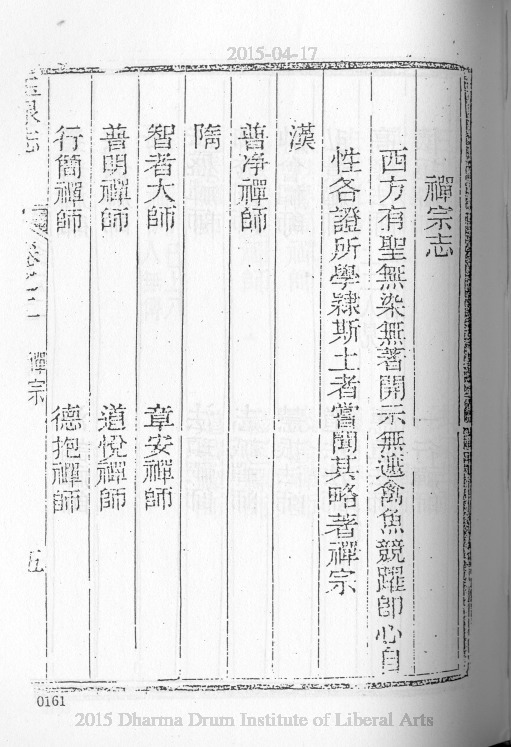 2015-04-17
禪宗志
西方有聖無染無著開示無遮禽魚競躍即心自
性各證所學隸斯土者嘗聞其略著禪宗
漢
普净禪師
隋
智者大師 章安禪師
普明禪師 道悅禪師
行簡禪師 德抱禪師
泉志 卷之二 禪宗 五
0161
2015 Dharma Drum Institute of Liberal Arts